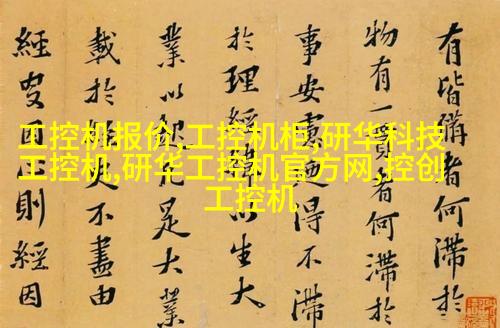 工控机报价,工控机柜,研华科技
工控机,研华工控机官方网,控创
工控机
有皆搆者何滞於
物有一者何滞於
事安得不滞
於理以生大
業以足大業
載於不盡由
經則經因